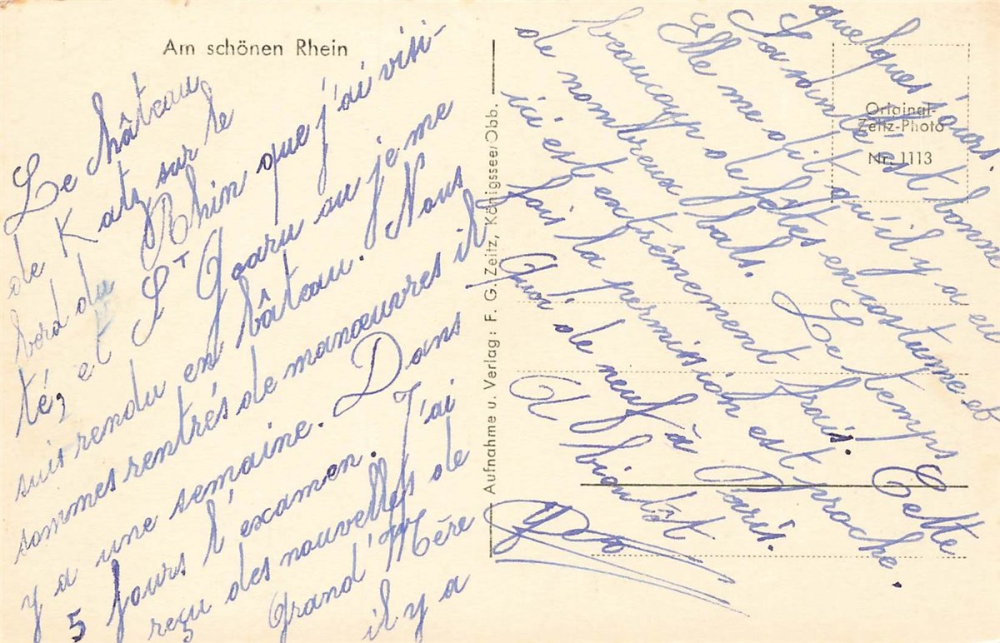 Am schönen Rhein
Le château
de Katz sur le
bord du Rhin que j'ai visi-
té, et St Goaru ou je me
suis rendu en bâteau. Nous
sommes rentrés de manœuvres il
y a une semaine. Dans
5 jours l'examen. J'ai
reçu des nouvelles de
Grand'Mère
il y a
Aufnahme u. Verlag: F. G. Zeitz, Königssee/Obb.
Original-
Zeitz-Photo
Nr. 1113
quelques jours.
Sa santé est bonne
Elle me dit qu'il y a eu
beaucoup de fêtes en costume et
de nombreux bals. Le temps
ici est extrêmement frais. Cette
fois la permission est proche.
Quoi de neuf à Paris.
A bientôt.